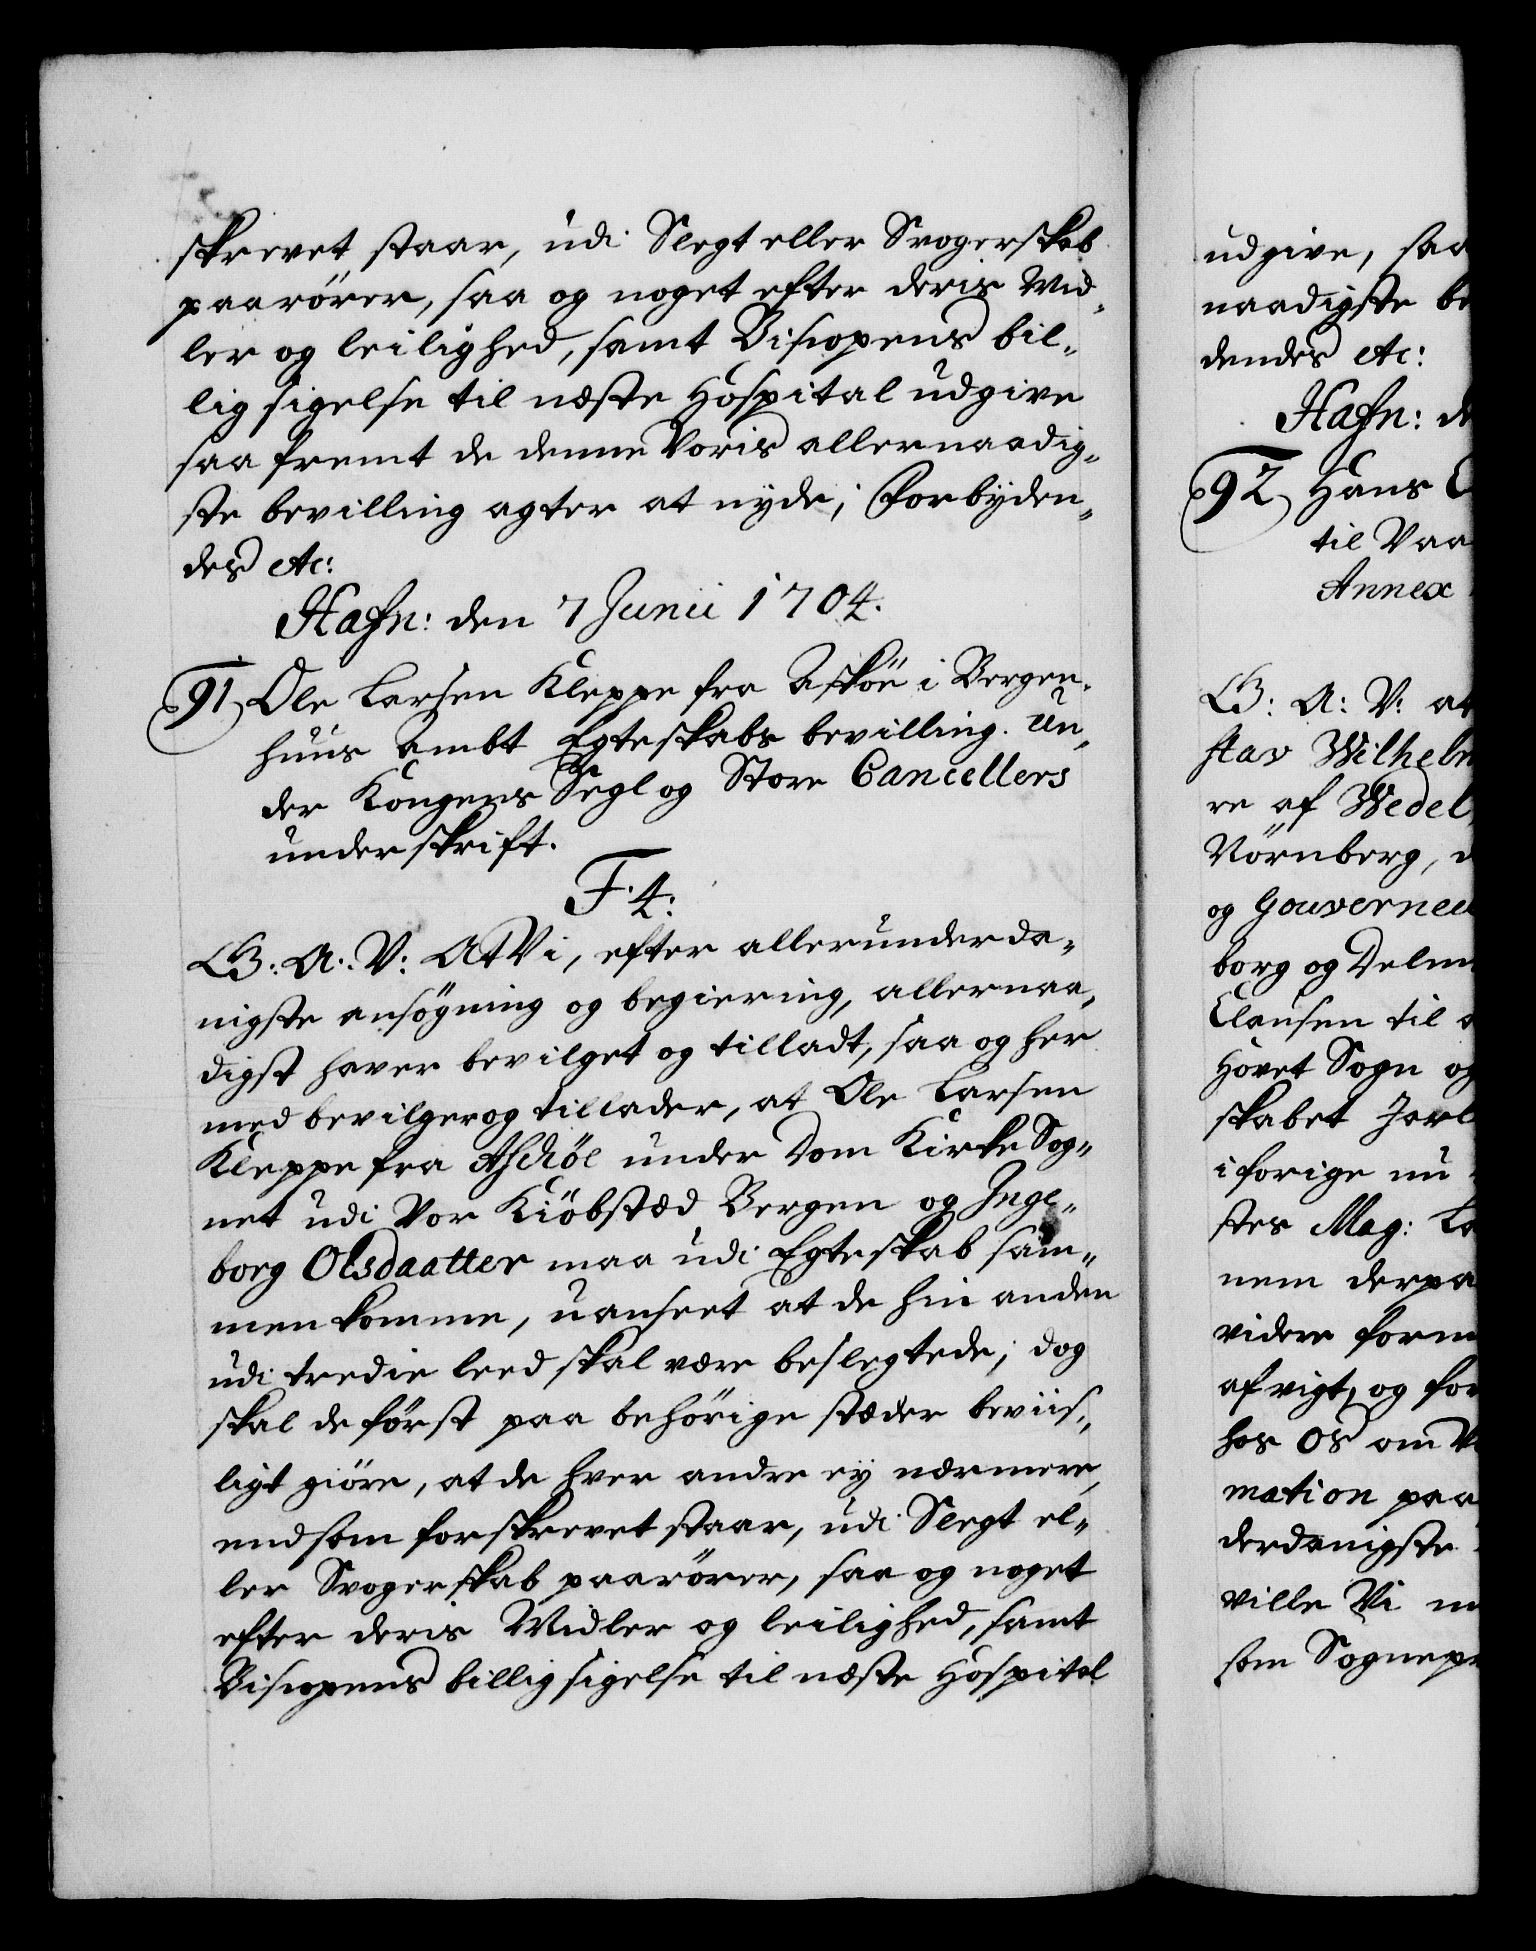 skrevet staar, udi Slegt eller Svogerskab
paarörer, saa og noget efter deris Mid„
ler og leilighed, samt Biscopens bil„
lig sigelse til næste Hospital udgive
saa fremt de denne Voris allernaadig„
ste bevilling agter at nyde; Forbyden„
des etc:
Hafn: den 7 Junii 1704.
91 Ole Larsen Kleppe fra Asköe i Bergen„
huus Ambt Egteskabs bevilling. Un„
der Kongens Segl og Store Cancellers
underskrift.
F. 4:
G: A: V: At Vi, efter allerunderda„
nigste ansögning og begiering, allernaa„
digst haver bevilget og tilladt, saa og her
med bevilger og tillader, at Ole Larsen
Kleppe fra Aschöe under Dom Kirke Sog„
net udi Vor Kiöbstæd Bergen og Inge„
borg Olsdaatter maa udi Egteskab sam„
men komme, uanseet at de hin anden
udi tredie leed skal være beslegtede; dog
skal de först paa behörige stæder beviis„
ligt giöre, at de hver andre ey nærmere,
end som forskrevet staar, udi Slegt el„
ler Svogerskab paarörer, saa og noget
efter deris Midler og leilighed, samt
Biscopens billig sigelse til næste Hospital
udgive, saa
naadigste be
dendes etc:
Hafn: de
92 Hans C
til Vaa
Annex
G: A: V: at
stav Wilhelm
re af Wedel
Nörnberg, 
og Gouverneu
borg og Delm
Clausen til
Hövet Sogn og
skabet Jarl
i forige nu
stes Mag: La
nem derpa
videre form
afvigt, og for
hos Os om V
mation paa
derdanigste
ville Vi n
som Sognepr